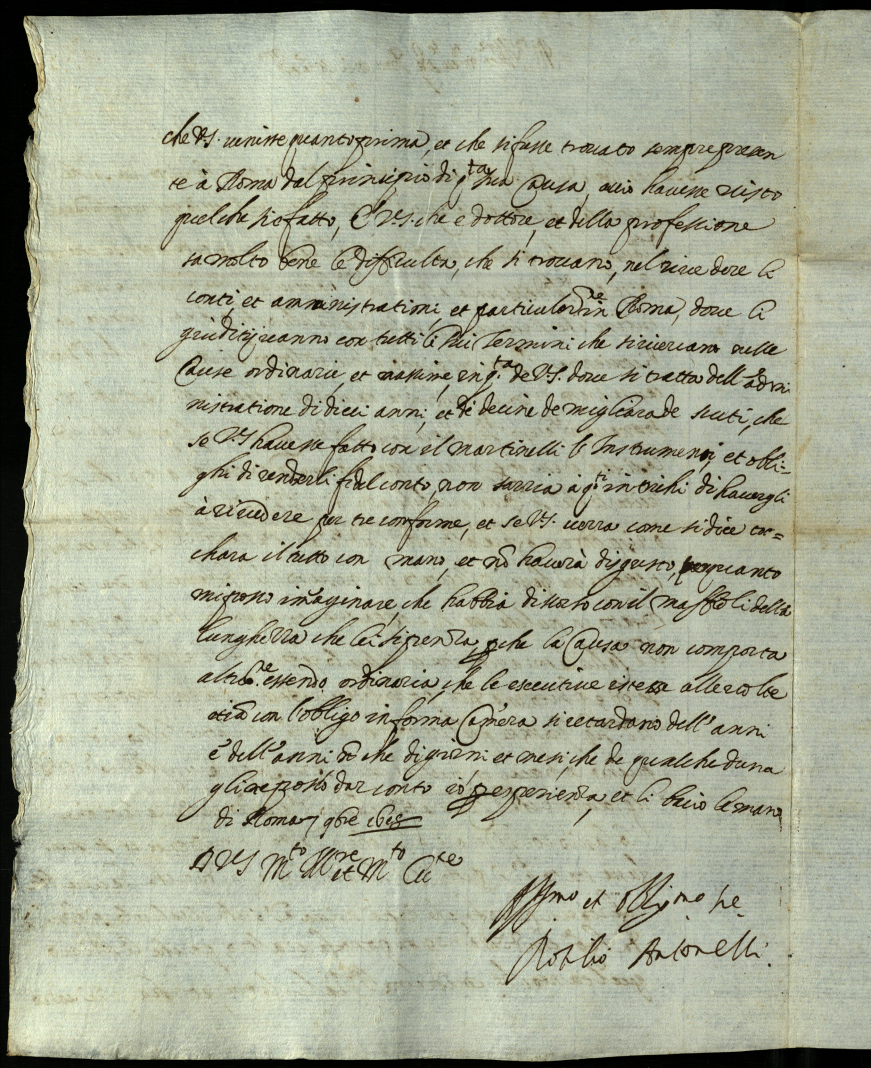 che V.S. venisse quanto prima, et che si fusse trovato sempre presen
te à Roma dal principio di q.ta sua Causa, acciò havesse visto
quelche si è fatto, E V.S. che e dottore, et della professione
sa molto bene le difficulta, che si trovano, nel rivedere li
conti, et amministrationi, et particularm.te in Roma, dove li
giuditij vanno con tutti li suoi Termini che si ricercano nelle
Cause ordinarie, et massime in q.ta de V.S. dove si tratta dell'admi
nistratione di dieci anni, et de decine de migliara de scuti, che
se V.S. havesse fatto con il Martinelli l'Instrumenti, et obli=
ghi di renderli fidel conto, non sarria à q.ti intrichi di havergli
à rivedere per tre conforme, et se V.S. verra come si dice toc=
chara il tutto con mano, et nõ haverà disgusto, per quanto
mi posso imaginare, che habbia discorso con il Maffioli della
lunghezza che lei si pensa, perche la Causa non comporta
altrim.te essendo ordinaria, che le esecutive istesse alle volte
etiã con l'obligo in forma Camera si retardano dell'anni
e dell'anni nõ che di giorni et mesi, che de qualcheduna
gliene posso dar conto io per esperienza, et li bacio le mani
di Roma 7 9bre
D V.S. M.to Ill.re et M.to
Aff.mo et Oblig.mo se.
Antonelli.